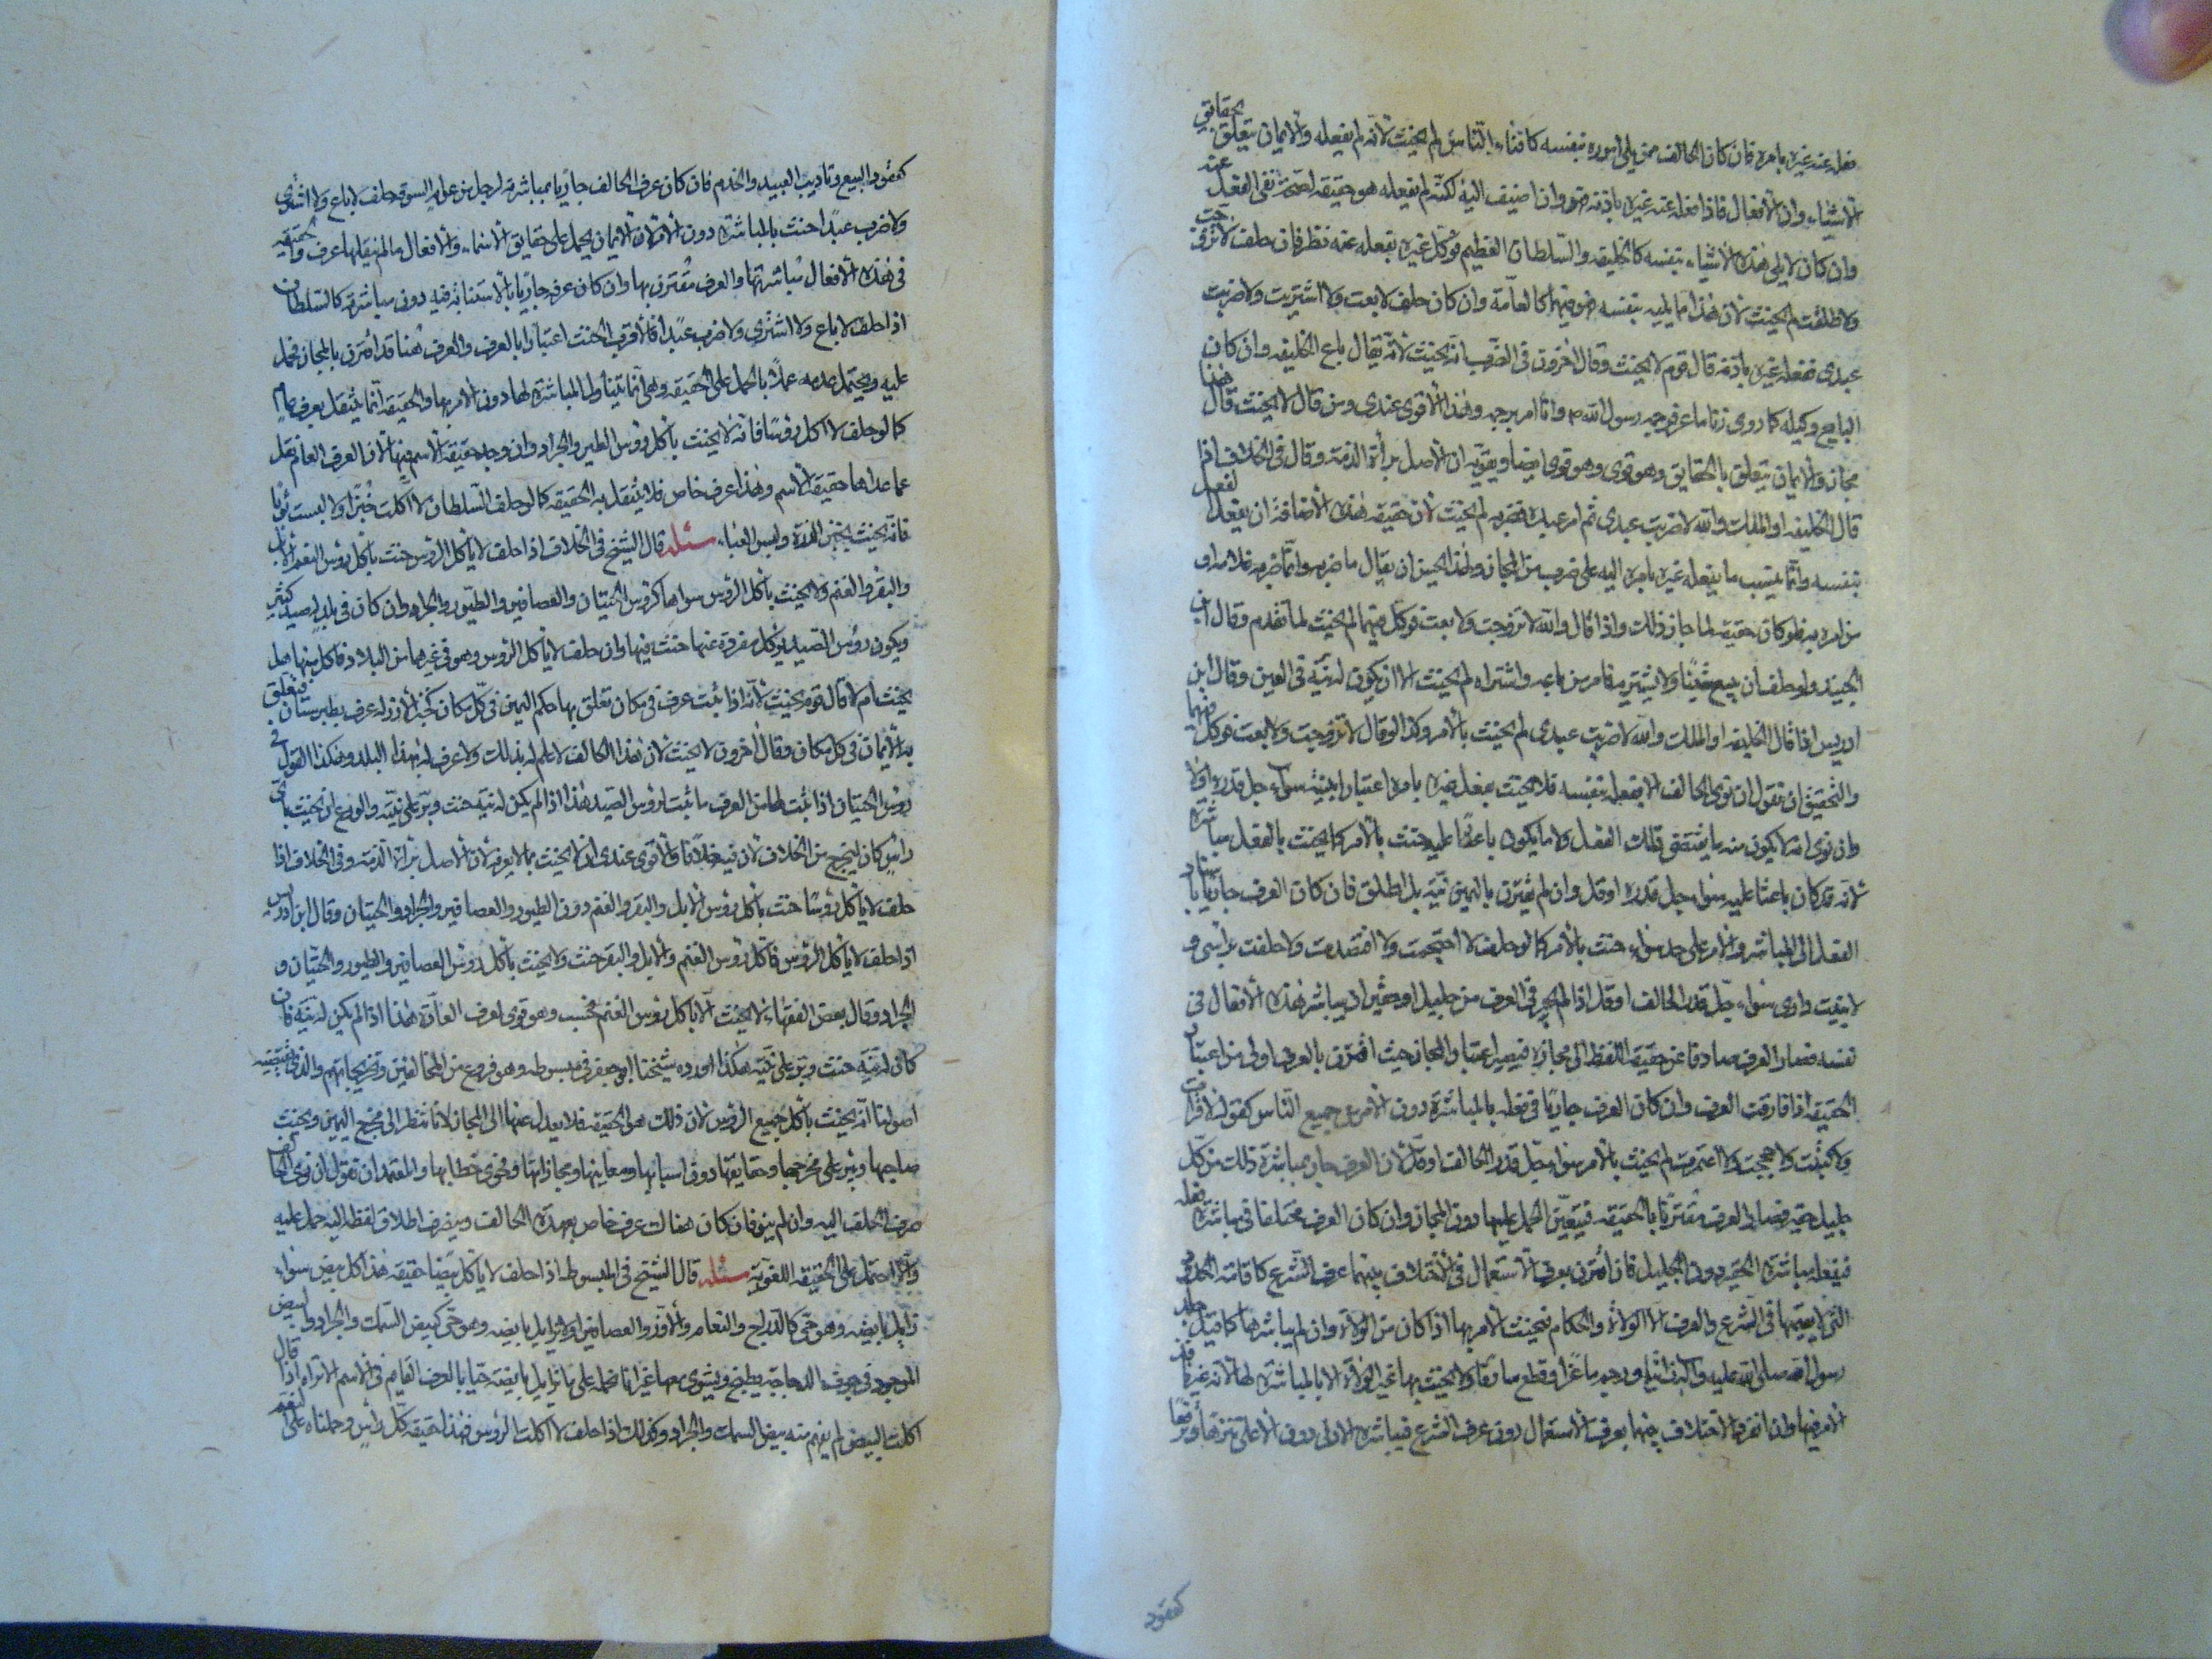 فعله عنه غيره بامره فان كان الحالف ممن يلي اموره بنفسه كافناء الناس لم يحنث لانه لم يفعله والايمان يتعلق بحقائق
الاشياء وان الافعال فاذا فعله عنه غيره باذنه فهو وان اضيف اليه لكنه لم يفعله هو حقيقة لصحة نفى الفعل عنه
وان كان لا يلي هذه الاشياء بنفسه كالخليفه والسلطان العظيم فوكل غيره بفعله عنه نظر فان حلف لا تزوجت
ولا طلقت لم يحنث لان هذا مما يليه بنفسه فهو فيهما كالعامة وان كان حلف لا بعت ولا اشتريت ولا ضربت
عبدى ففعله غيره باذنه قال قوم لا يحنث وقال اخرون فى الضرب انه يحنث لانه يقال باع الخليفه وان كان
البايع وكيله كما روى زنا ماعز فرجمه رسول الله وانما امر برجمه وهذا الاقوى عندى ومن قال لا يحنث قال هذا
مجاز والايمان يتعلق بالحقايق وهو قوى وهو قوى ايضا ويقويه ان الاصل برأة الذمة وقال فى الخلاف اذا
قال الخليفه او الملك والله لا ضربت عبدى ثم امر عبده فضربه لم يحنث لان حقيقه هذه الاضافة ان يفعل لفعل
بنفسه وانما ينسب ما يفعله غيره بامره اليه على ضرب من المجاز ولهذا يحسن ان يقال ما ضربه وانما ضربه غلامه او
من امره به فلو كان حقيقة لما جاز ذلك واذا قال والله لا تزوجت ولا بعت فوكل فيهما لم يحنث لما تقدم وقال ابن
الجنيد ولو حلف ان يبيع شيئا ولا يشتريه فامر من باعه واشتراه لم يحنث الا ان يكون له نية فى اليمين وقال ابن
ادريس اذا قال الخليفه او الملك والله لا ضربت عبدى لم يحنث بالامر وكذا لو قال لا تزوجت ولا بعت فوكل فيهما
والتحقيق ان نقول ان نوى الحالف الا يفعله بنفسه فلا يحنث بفعل غيره بامره اعتبارا بنيته سواء جل قدره اولا
وان نوى انه لا يكون منه ما يقتضى ذلك الفعل ولا ما يكون باعثا عليه حنث بالامر كما يحنث بالفعل مباشرة
لانه قد كان باعثا عليه سواء جل قدره او قل وان لم يقترن باليمين نية بل اطلق فان كان العرف جاريا باسناد
الفعل الى المباشر والامر على حد سواء حنث بالامر كما لو حلف لا احتجمت ولا افتصدت ولا حلقت رأسى و
لا بنيت دارى سواء جل قدر الحالف او قل اذا لم يجر فى العرف من جليل او حقير ان يباشر هذه الافعال فى
نفسه فصار العرف صادفا عن حقيقة اللفظ الى مجازه فيصير اعتبار المجاز حيث اقترن بالعرف اولى من اعتبار
الحقيقه اذا فارقت العرف وان كان العرف جاريا فى فعله بالمباشرة دون الامر من جميع الناس كقوله لا قرأت
ولا كتبت ولا حججت ولا اعتمرت لم يحنث بالامر سواء جل قدر الحالف او قل لان العرف جار بمباشرة ذلك من كل
جليل وحقير فصار العرف مقترنا بالحقيقه فيتعين الحمل عليها دون المجاز وان كان العرف مختلفا فى مباشرة فعله
فيفعله مباشرة الحقير دون الجليل فان اقترن بعرف الاستعمال فى الاختلاف بينهما عرف الشرع كاقامة الحدود
التى لا يقيمها فى الشرع والعرف الا الولاة والحكام فيحنث الامر بها اذا كان من الولاة وان لم يباشرها كما قيل جلد
رسول الله صلى الله عليه وآله زانيا ورجم ماعزا وقطع سارقا ولا يحنث بها غير الولاة الا بالمباشرة لها لانه غير نافذ
الامر فيها وان انفرد الاختلاف بينهما بعرف الاستعمال دون عرف الشرع فيباشره الادنى دون الاعلى تنزها وترفعا
كعقود
كعقود البيع وتاديب العبيد والخدم فان كان عرف الحالف جاريا بمباشرته لرجل من عوام السوقة حلف لا باع ولا اشترى
ولا ضرب عبدا حنث بالمباشرة دون الامر لان الايمان يحمل على حقايق الاسماء والافعال ما لم ينقلها عرف والحقيقه
فى هذه الافعال مباشرتها والعرف مقترن بها وان كان عرفه جاريا بالاستنابة فيه دون مباشرته كالسلطان
اذا حلف لا باع ولا اشترى ولا ضرب عبدا فالاقرب الحنث اعتبارا بالعرف والعرف هنا قد اقترن بالمجاز فحمل
عليه ويحتمل عدمه عملا بالحمل على الحقيقه وهى انما يتناول المباشرة لها دون الامر بها والحقيقه انما ينتقل بعرف عام
كما لو حلف لا اكل رؤسا فانه لا يحنث باكل رؤس الطير والجراد وان وجد حقيقة الاسم فيها لان العرف العام نقل
عما عداها حقيقة الاسم وهذا عرف خاص فلا ينتقل به الحقيقه كما لو حلف السلطان لا اكلت خبزا ولا لبست ثوبا
فانه يحنث بخبز الذرة ولبس العباء مسئله قال الشيخ فى الخلاف اذا حلف لا ياكل الرؤس حنث باكل رؤس النعم الابل
والبقر والغنم ولا يحنث باكل الرؤس سواها كرؤس الحيتان والعصافير والطيور والجراد وان كان فى بلد له صيد كثير
ويكون رؤس الصيد يؤكل مفردة عنها حنث فيها وان حلف لا ياكل الرؤس وهو فى غيرها من البلاد فاكل منها هل
يحنث ام لا قال قوم يحنث لانه اذا ثبت عرف فى مكان تعلق بها حكم اليمين فى كل مكان كخبز الارز له عرف بطبرستان فيتعلق
به الايمان فى كل مكان وقال اخرون لا يحنث لان هذا الحالف لا علم له بذلك ولا عرف له بهذا البلد وهكذا القول فى
رؤس الحيتان اذا ثبت لها من العرف ما ثبت لرؤس الصيد هذا اذا لم يكن له نية حنث وبر على نيته والورع ان يحنث باى
رأس كان ليخرج من الخلاف لان فيه خلافا والاقوى عندى ان لا يحنث بما لا يعرفه لان الاصل برأة الذمة وفى الخلاف اذا
حلف لا ياكل رؤسا حنث باكل رؤس الابل والبقر والغنم دون الطيور والعصافير والجراد والحيتان وقال ابن ادريس
اذا حلف لا ياكل الرؤس فاكل رؤس الغنم والابل والبقر حنث ولا يحنث باكل رؤس العصافير والطيور والحيتان و
الجراد وقال بعض الفقهاء لا يحنث الا باكل رؤس الغنم فحسب وهو قوى لعرف العادة هذا اذا لم يكن له نية فان
كان له نية حنث وبر على نيته هكذا اورده شيخنا ابو جعفر فى مبسوطه وهو فروع من المخالفين وتخريجاتهم والذى يقتضيه
اصولنا انه يحنث باكل جميع الرؤس لان ذلك هو الحقيقه فلا يعدل عنها الى المجاز لانا ننظر الى مخرج اليمين ويحنث
صاحبها ويبر على مخرجها وحقايقها دون اسبابها ومعاينها ومجازاتها وفحوى خطابها والمعتمد ان نقول ان نوى الحالف
صرف الحلف اليه وان لم ينو فان كان هناك عرف خاص يعهده الحالف ويصرف اطلاق لفظه اليه حمل عليه
والا حمل على الحقيقه اللغوية مسئله قال الشيخ فى المبسوط اذا حلف لا ياكل بيضا حقيقه هذا كل بيض سواء
زايل بايضه وهو حى كالدراج والنعام والاوز والعصافير اولا يزايل بايضه وهو حى كبيض السمك والجراد والبيض
الموجود فى جوف الدجاجة يطبخ ويشوى معها غير انا نحمله على ما يزايل بايضه حيا بالعرف القايم فى الاسم الا تراه اذا قال
اكلت البيض لم يفهم منه بيض السمك والجراد وكذلك اذا حلف لا اكلت الرؤس فهذا حقيقه كل رأس وحملناه على النعم